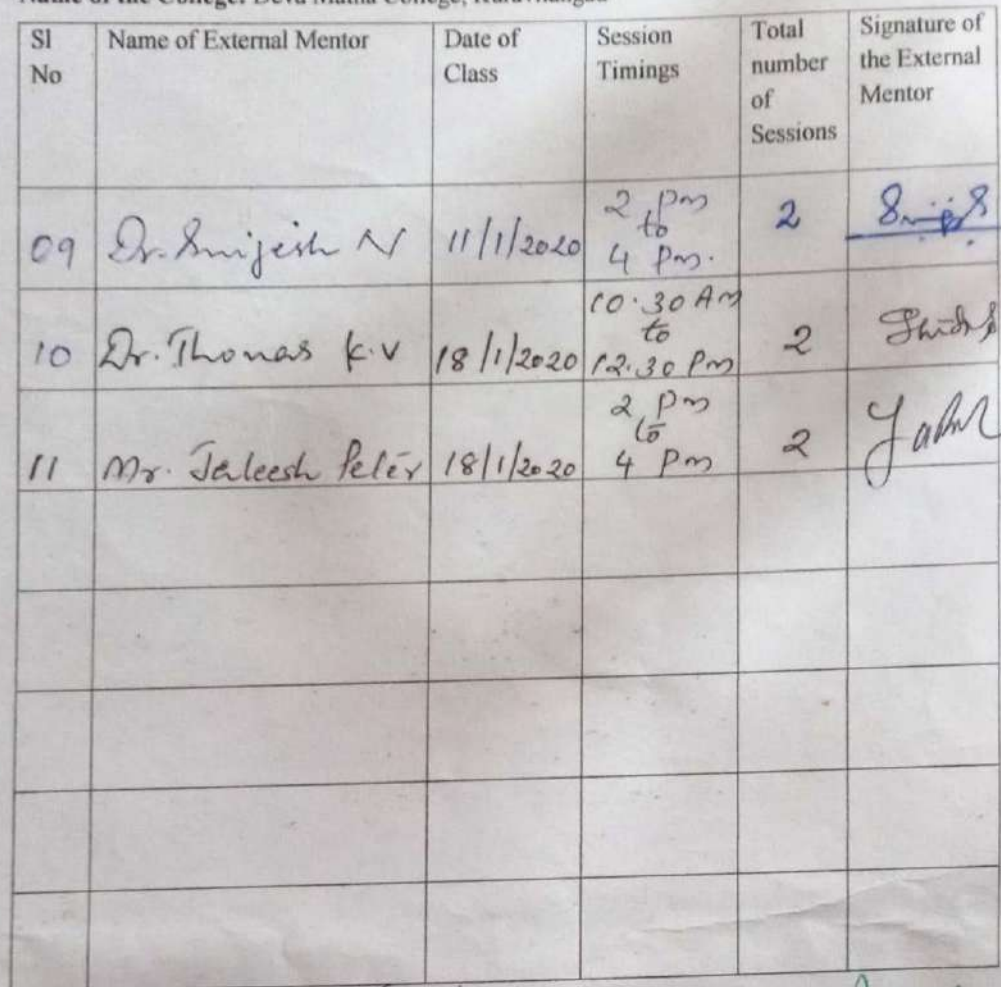 Name of the College: Deva Matha College, Kuravilangad
Sl No | Name of External Mentor | Date of Class | Session Timings | Total number of Sessions | Signature of the External Mentor
09 | Dr. Smijesh N | 11/1/2020 | 2 pm to 4 pm. | 2
10 | Dr. Thomas K.V | 18/1/2020 | 10.30 Am to 12.30 Pm | 2
11 | Mr. Jaleesh Peter | 18/1/2020 | 2 pm to 4 pm | 2